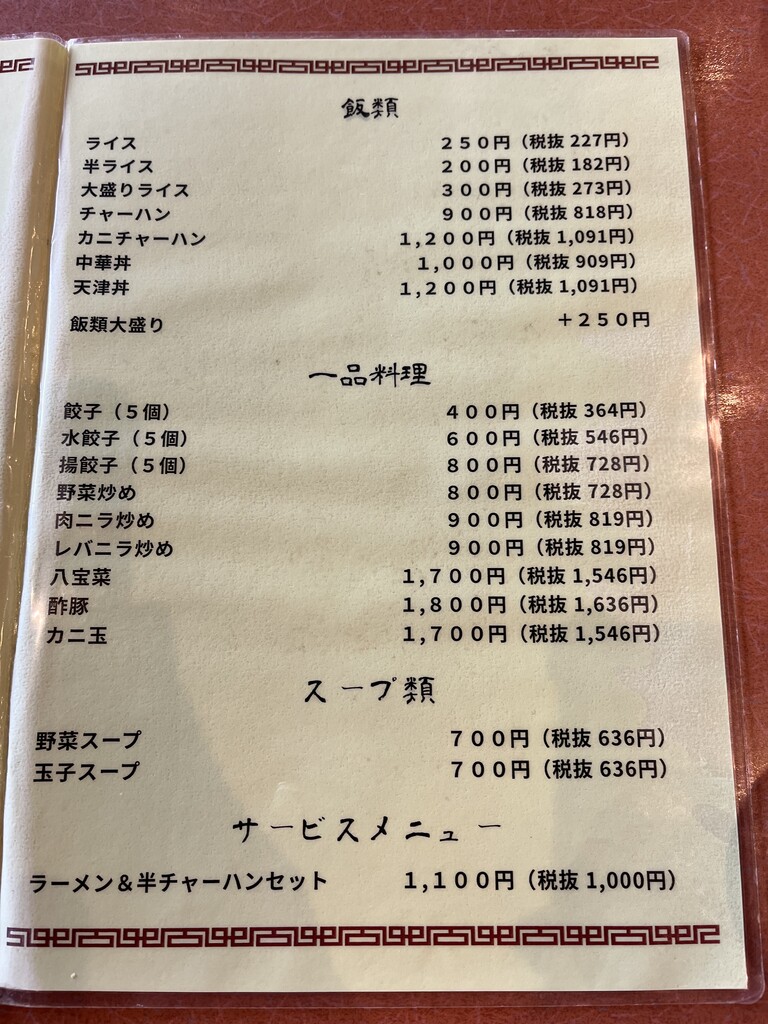 飯類
ライス　２５０円（税抜 227円）
半ライス　２００円（税抜 182円）
大盛りライス　３００円（税抜 273円）
チャーハン　９００円（税抜 818円）
カニチャーハン　１,２００円（税抜 1,091円）
中華丼　１,０００円（税抜 909円）
天津丼　１,２００円（税抜 1,091円）
飯類大盛り　＋２５０円
一品料理
餃子（５個）　４００円（税抜 364円）
水餃子（５個）　６００円（税抜 546円）
揚餃子（５個）　８００円（税抜 728円）
野菜炒め　８００円（税抜 728円）
肉ニラ炒め　９００円（税抜 819円）
レバニラ炒め　９００円（税抜 819円）
八宝菜　１,７００円（税抜 1,546円）
酢豚　１,８００円（税抜 1,636円）
カニ玉　１,７００円（税抜 1,546円）
スープ類
野菜スープ　７００円（税抜 636円）
玉子スープ　７００円（税抜 636円）
サービスメニュー
ラーメン＆半チャーハンセット　１,１００円（税抜 1,000円）